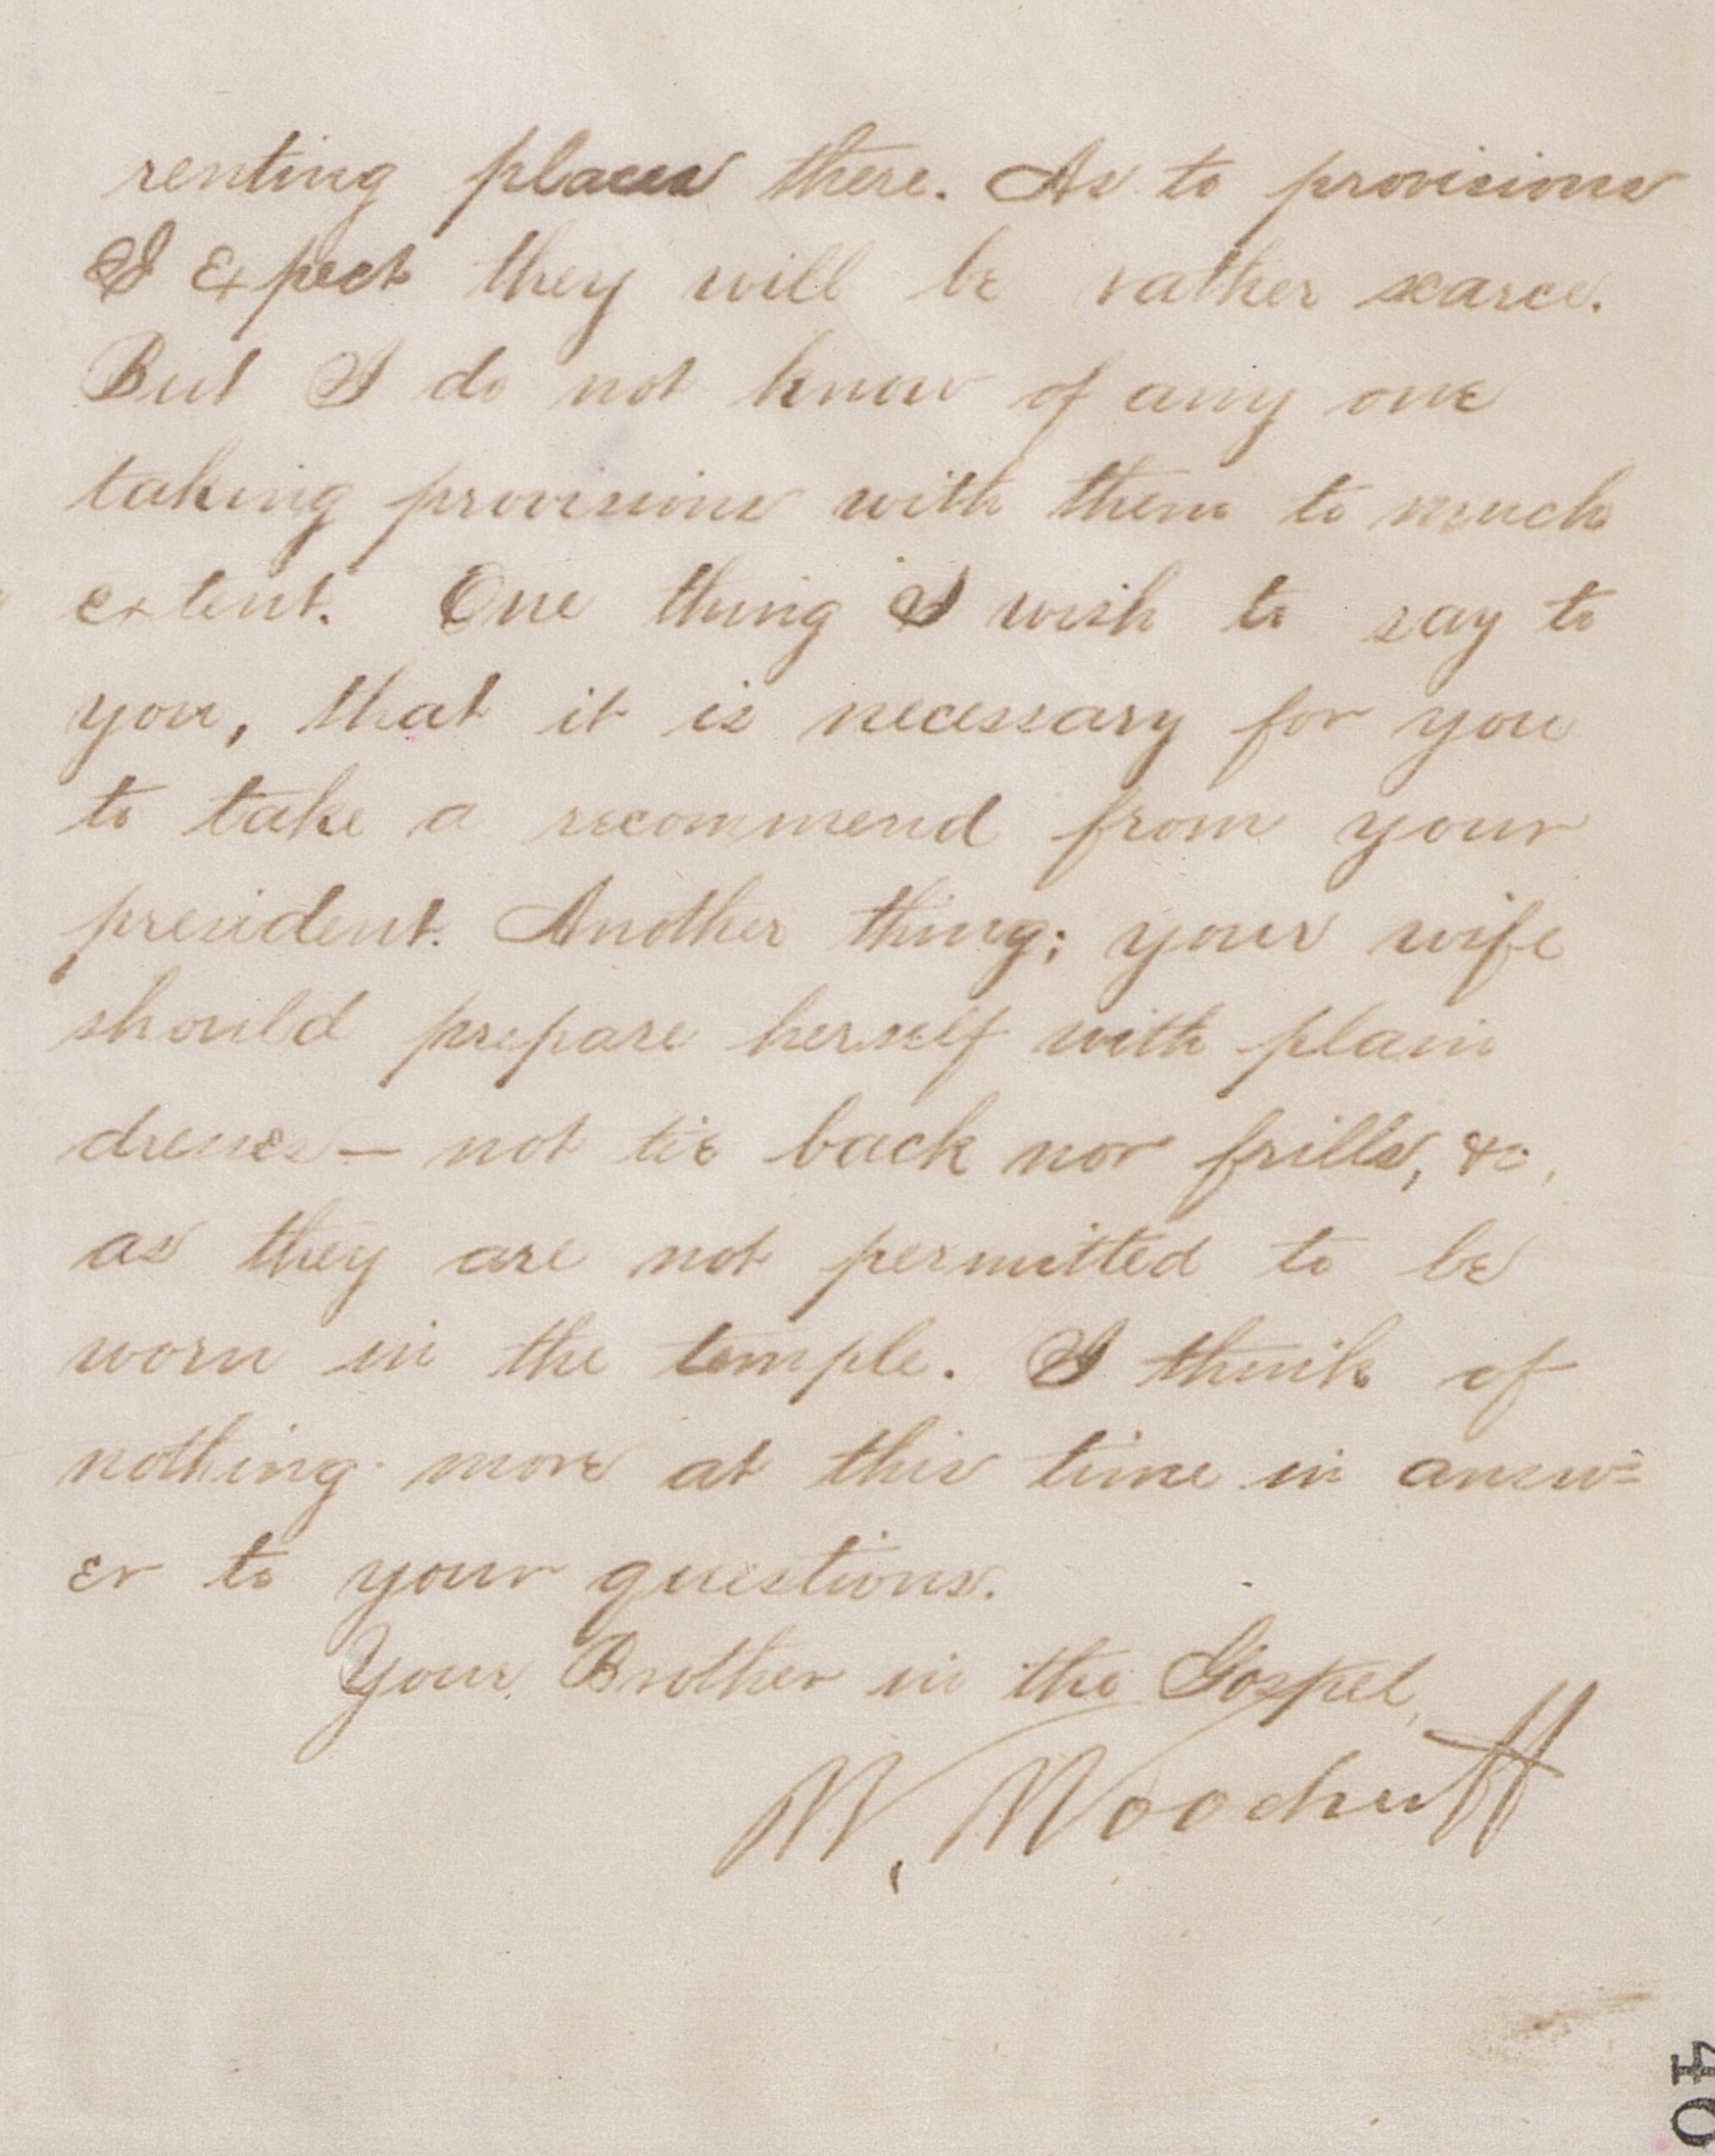 renting places there. As to provisions
I expect they will be rather scarce.
But I do not know of any one
taking provisions with them to much
extent. One thing I wish to say to
you, that it is necessary for you
to take a recommend from your
president. Another thing; your wife
should prepare herself with plain
dresses — not tie back nor frills, &c,
as they are not permitted to be
worn in the temple. I think of
nothing more at this time in answ=
er to your questions.
Your Brother in the Gospel,
W. Woodruff
40